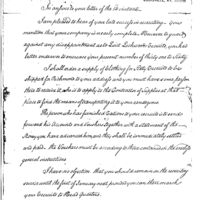 In answer to your letter of the 8th instant
I am pleased to hear of your late success in recruiting. You
mention that your company is nearly complete. Measure to guard
against any disappointment as to besit Richmond Recruits, you had
better endeavor to increase your present number of thirty one to Sixty
I shall order a supply of clothing for Sixty Recruits to be
shipped for Richmond to your address and you must have some person
there to receive it, who is to apply to the Contractor of Supplies at that
place to find the means of transporting it to your rendezvous
The person who has furnished Rations to your recruits is to send
forward his Accounts and Vouchers together with a statement of the
Money you have advanced him and they shall be immediately settled
and paid. the Vouchers must be according to those contained in the
general instructions
I have no objection that you should remain on the recruiting
service until the first of January next provided you can then march
your Recruits to Head quarters.